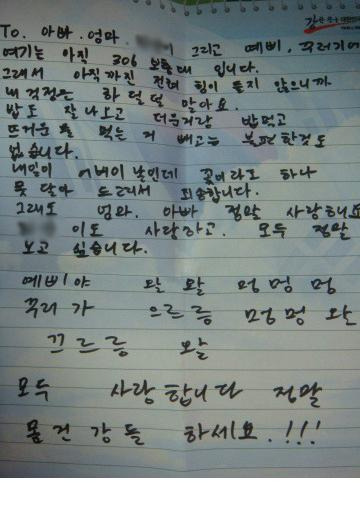 강한 친구 대한민국
To. 아빠. 엄마. 이 그리고 예삐, 꾸러기에
여기는 아직 306 보충대 입니다.
그래서 아직까진 전혀 힘이 들지 않으니까
내 걱정은 하덜덜 말아요.
밥도 잘 나오고 더우거랑 밥먹고
뜨거운 물 먹는 거 빼고는 불편한것도
없습니다.
내일이 어버이 날인데 꽃이라도 하나
못 달아 드려서 죄송합니다.
그래도 엄마. 아빠 정말 사랑해요
이도 사랑하고. 모두 정말
보고 싶습니다.
예삐야 왈 왈 멍 멍 멍
꾸러가 으르릉 멍멍 왈
끄르릉 왈
모두 사랑합니다 정말
몸 건강들 하세요.!!!